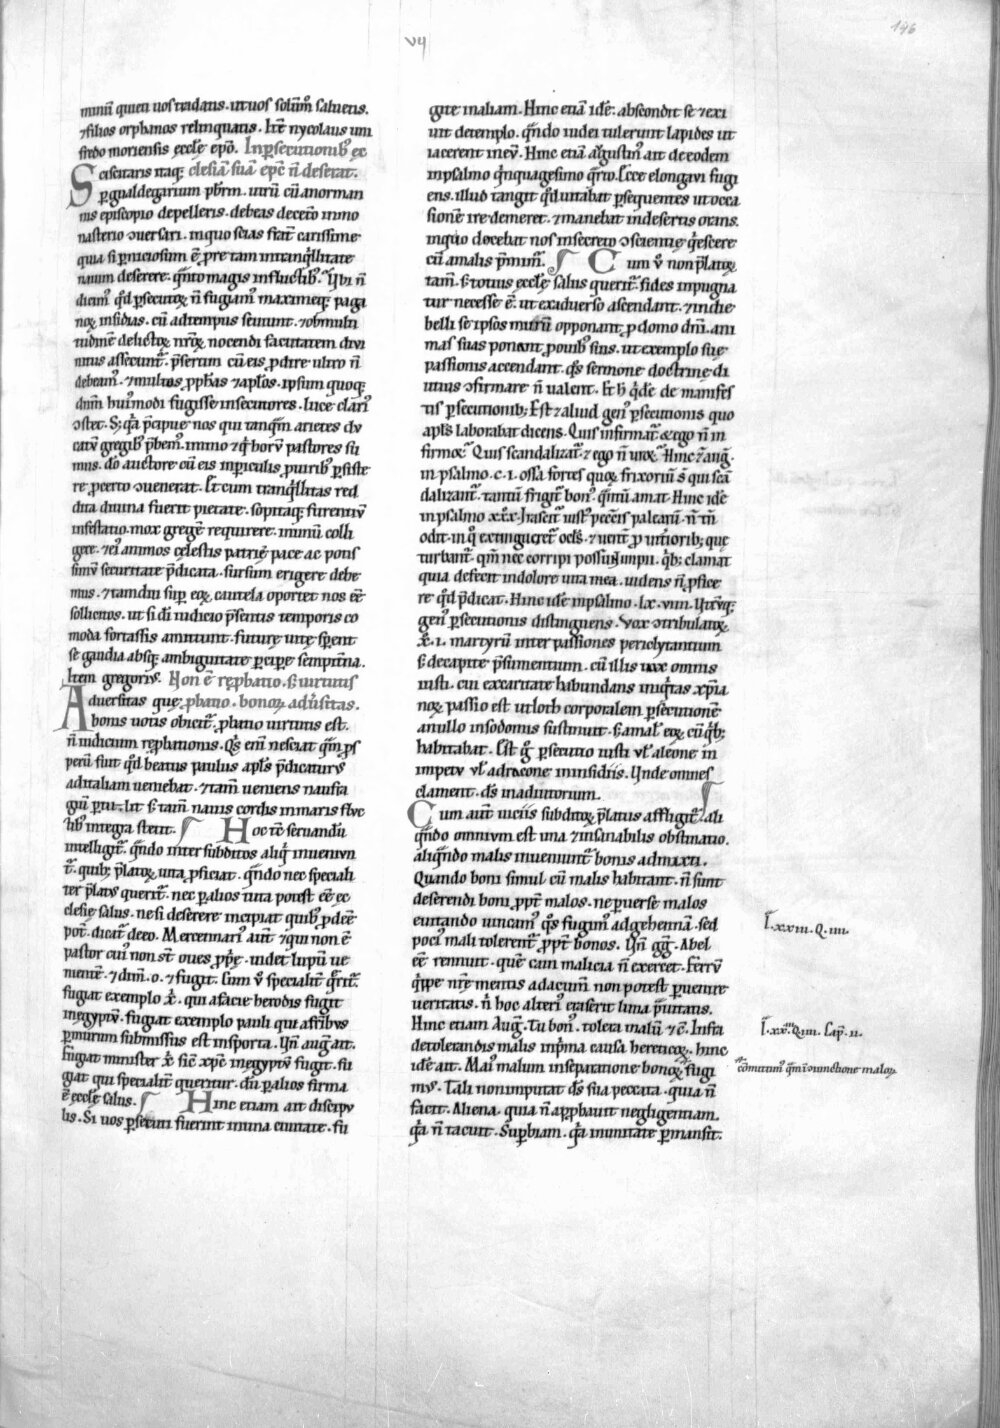 146
VII
minū quien uos tradans. ut uos solūm̄ salueris.
⁊ filios orphanos relinquatis. Itē nycolaus um
fredo moriensis ęccłę ep̄o. In p̄secutionib; ęc
Sciscitaris itaq; clesiā suā ep̄c n̄ deserat.
p̱ gualdegarium p̄brm̄. utrū cū a norman
nis episcopio depelleris. debeas decet̄o in mo
nasterio ɔuersari. in quo scias frat̄ carissime
quia si p̱niciosum ē p̱retam in tranq̇llitate
nauim deserere. q̄nto magis in fluctib;. Vbi n̄
dicim᷒ q̇d p̱secutoꝝ n̄ fugiam᷒ maximeq; paga
noꝝ insidias. cū ad tempus seuiunt. ⁊ ob multi
tudinē delictoꝝ nr̄oꝝ nocendi facultatem diui
nitus assecunt᷒. p̄sertim cū eis p̱dire ultro n̄
debeam᷒. ⁊ multos p̱ph̄as ⁊ ap̄los. ipsum quoq;
dn̄m hui᷒modi fugisse insecutores. luce clari᷒
ɔstet. S; q̇a p̄cipue nos qui tanq̄m arietes du
catū gregib; p̄bem᷒. immo ⁊ q̇ horū pastores su
mus. dō auctore cū eis in p̱iculis p̱uirib; p̱siste
re p̱certo ɔuenerat. Ut cum tranq̇llitas red
dita diuina fuerit pietate. sopitaq; furentiū
infestatio. mox gregē requirere. in unū colli
gere. ⁊ ei᷒ animos cęlestis patrię pace ac pois
simū securitate p̄dicata. sursum erigere debe
mus. ⁊ tamdiu sup̱ eoꝝ cautela oportet nos eē
sollicitos. ut si dī iudicio p̄sentis temporis co
moda fortassis amittunt. futurę uitę sp̱ent
se gaudia absq; ambiguitate p̱cip̱e sempit̄na.
Item gregori᷒. Non ē rep̱batio. s; uirtutis
Aduersitas quę p̱batio. bonoꝝ adūsitas.
bonis uotis obicit᷒. p̱batio uirtutis est.
n̄ iudicium rep̱bationis. Q̇s eni᷒ nesciat q̄m p̱s
perū fuit q̇d beatus paulus ap̄ls p̄dicaturus
ad italiam ueniebat. ⁊ tam̄ ueniens naufra
giū p̱tulit. s; tam̄ nauis cordis in maris fluc
tib; integra stetit. Hoc tc̄ seruandū
intelligit᷒. q̄ndo inter subditos aliq̇ inueniun
t᷒. quib; p̄latoꝝ uita p̱ficiat. q̄ndo nec speciali
ter p̄lati᷒ querit᷒. nec p̱ alios tuta potest eē ec
clesię salus. ne si deserere incipiat quib; p̱deē
pot̄. dicat᷒ de eo. Mercennari᷒ aut̄ ⁊ qui non ē
pastor cui᷒ non st̄ oues p̱p̱ę. uidet lupū ue
nientē. ⁊ dim̄. o. ⁊ fugit. Cum ꝟ specialit̄ q̄rit᷒.
fugiat exemplo x̄i. qui a facie herodis fugit
in egyptū. fugiat exemplo pauli qui a fr̄ibus
p̱ murum submissus est in sporta. Vn̄ aug᷒ ait.
fugiat minister x̄i sic̄ xp̄c in egyptū fugit. fu
giat qui specialit̄ queritur. dū p̱ alios firma
ē ęccłę salus. Hinc etiam ait discipu
lis. Si uos p̱secuti fuerint in una ciuitate. fu
gite in aliam. Hinc etiā id̄e. abscondit se ⁊ exi
uit de templo. q̄ndo iudei tulerunt lapides ut
iacerent in eū. Hinc etiā augustin᷒ ait de eodem
in psalmo q̇nquagesimo q̇rto. Ecce elongaui fugi
ens. illud tangit q̇d uitabat p̱sequentes ut occa
sionē ire demeret. ⁊ manebat in desertis orans.
in quo docebat nos in secreto ɔscientię q̇escere
cū a malis p̄mim᷒. Cum ꝟ non p̄latoꝝ
tam̄. s; totius ęccłę salus querit᷒. fides inpugna
tur necesse ē. ut ex aduerso ascendant. ⁊ in die
belli se ipsos murū opponant p̱ domo dn̄i. ani
mas suas ponant p̱ ouib; suis. ut exemplo suę
passionis accendant. q̇s sermone doctrinę di
uinus ɔfirmare n̄ ualent. Et h̄ q̇de de manifes
tis p̱secutionib; Est ⁊ aliud gen᷒ p̱secutionis quo
ap̄ls laborabat dicens. Quis infirmat᷒ ⁊ ego n̄ in
firmor᷒ Quis scandalizat᷒ ⁊ ego n̄ uror᷒ Hinc ⁊ aug̱.
in psalmo .c.i. ossa fortes quoꝝ frixoriū s̄ qui scā
dalizant᷒. tantū frigit᷒ bon᷒. q̄ntū amat Hinc id̄e
in psalmo .xxx. Irascit᷒ iust᷒ peccās paleam̄. n̄ tm̄
odit. in q̇ extingueret᷒ ocl̄s. ⁊ uent̄ p̱ int̄iorib; quę
turbant᷒. q̄m nec corripi possunt impii. q̇b; clamat
quia defecit in dolore uita mea. uidens n̄ p̱ficę
re q̇d p̄dicat. Hinc id̄e in psalmo .lx.viiii. Vtrūq;
gen᷒ p̱secutionis distinguens. Vox ɔtribulatoꝝ
x̄i .i. martyrū inter passiones periclytantium
s; de capite p̄sumentium. cū illis uox omnis
iusti. cui ex caritate habundans iniq̇tas xp̄ia
noꝝ passio est ut loth corporalem p̱secutionē
a nullo in sodomis sustinuit. s; a mal᷒ eoꝝ cū q̇b;
habitabat. Est ḡ p̱secutio iusti ul̄ a leone in
impetu ul̄ a dracone in insidiis. Vnde omnes
clament. d̄s in adiutorium.
Cum aut̄ uiciis subditoꝝ p̄latus affligit᷒. ali
q̄ndo omnium est una ⁊ insanabilis obstinatio.
aliq̄ndo malis inueniunt᷒ bonis admixti.
Quando boni simul cū malis habitant. n̄ sunt
deserendi boni p̱pt̄ malos. ne p̱uerse malos
euitando uincam᷒ q̇s fugim᷒ ad gehennā. sed
poci᷒ mali tolerent᷒ p̱pt̄ bonos. Vn̄ gg̱. Abel
eē rennuit. quē cain malicia n̄ exercet. Ferrū
q̇ppe nr̄ę mentis ad acumī non potest p̱uenire
ueritatis. n̄ hoc alteri᷒ eraserit lima p̄uitatis.
Hinc etiam Aug᷒. Tu bon᷒. tolera malū ⁊ c̄. Infra
de tolerandis malis in p̄ma causa hereticoꝝ. hinc
id̄e ait. Mai᷒ malum in separatione bonoꝝ fugi
m᷒. Tali non imputat d̄s sua peccata. quia n̄
facit. Aliena. quia n̄ app̱bauit negligentiam.
q̇a n̄ tacuit. Sup̱biam. q̇a in unitate p̱mansit.
J. xxiii. Q. iiii.
J. xx. Q. iiii. Cap̄. ii.